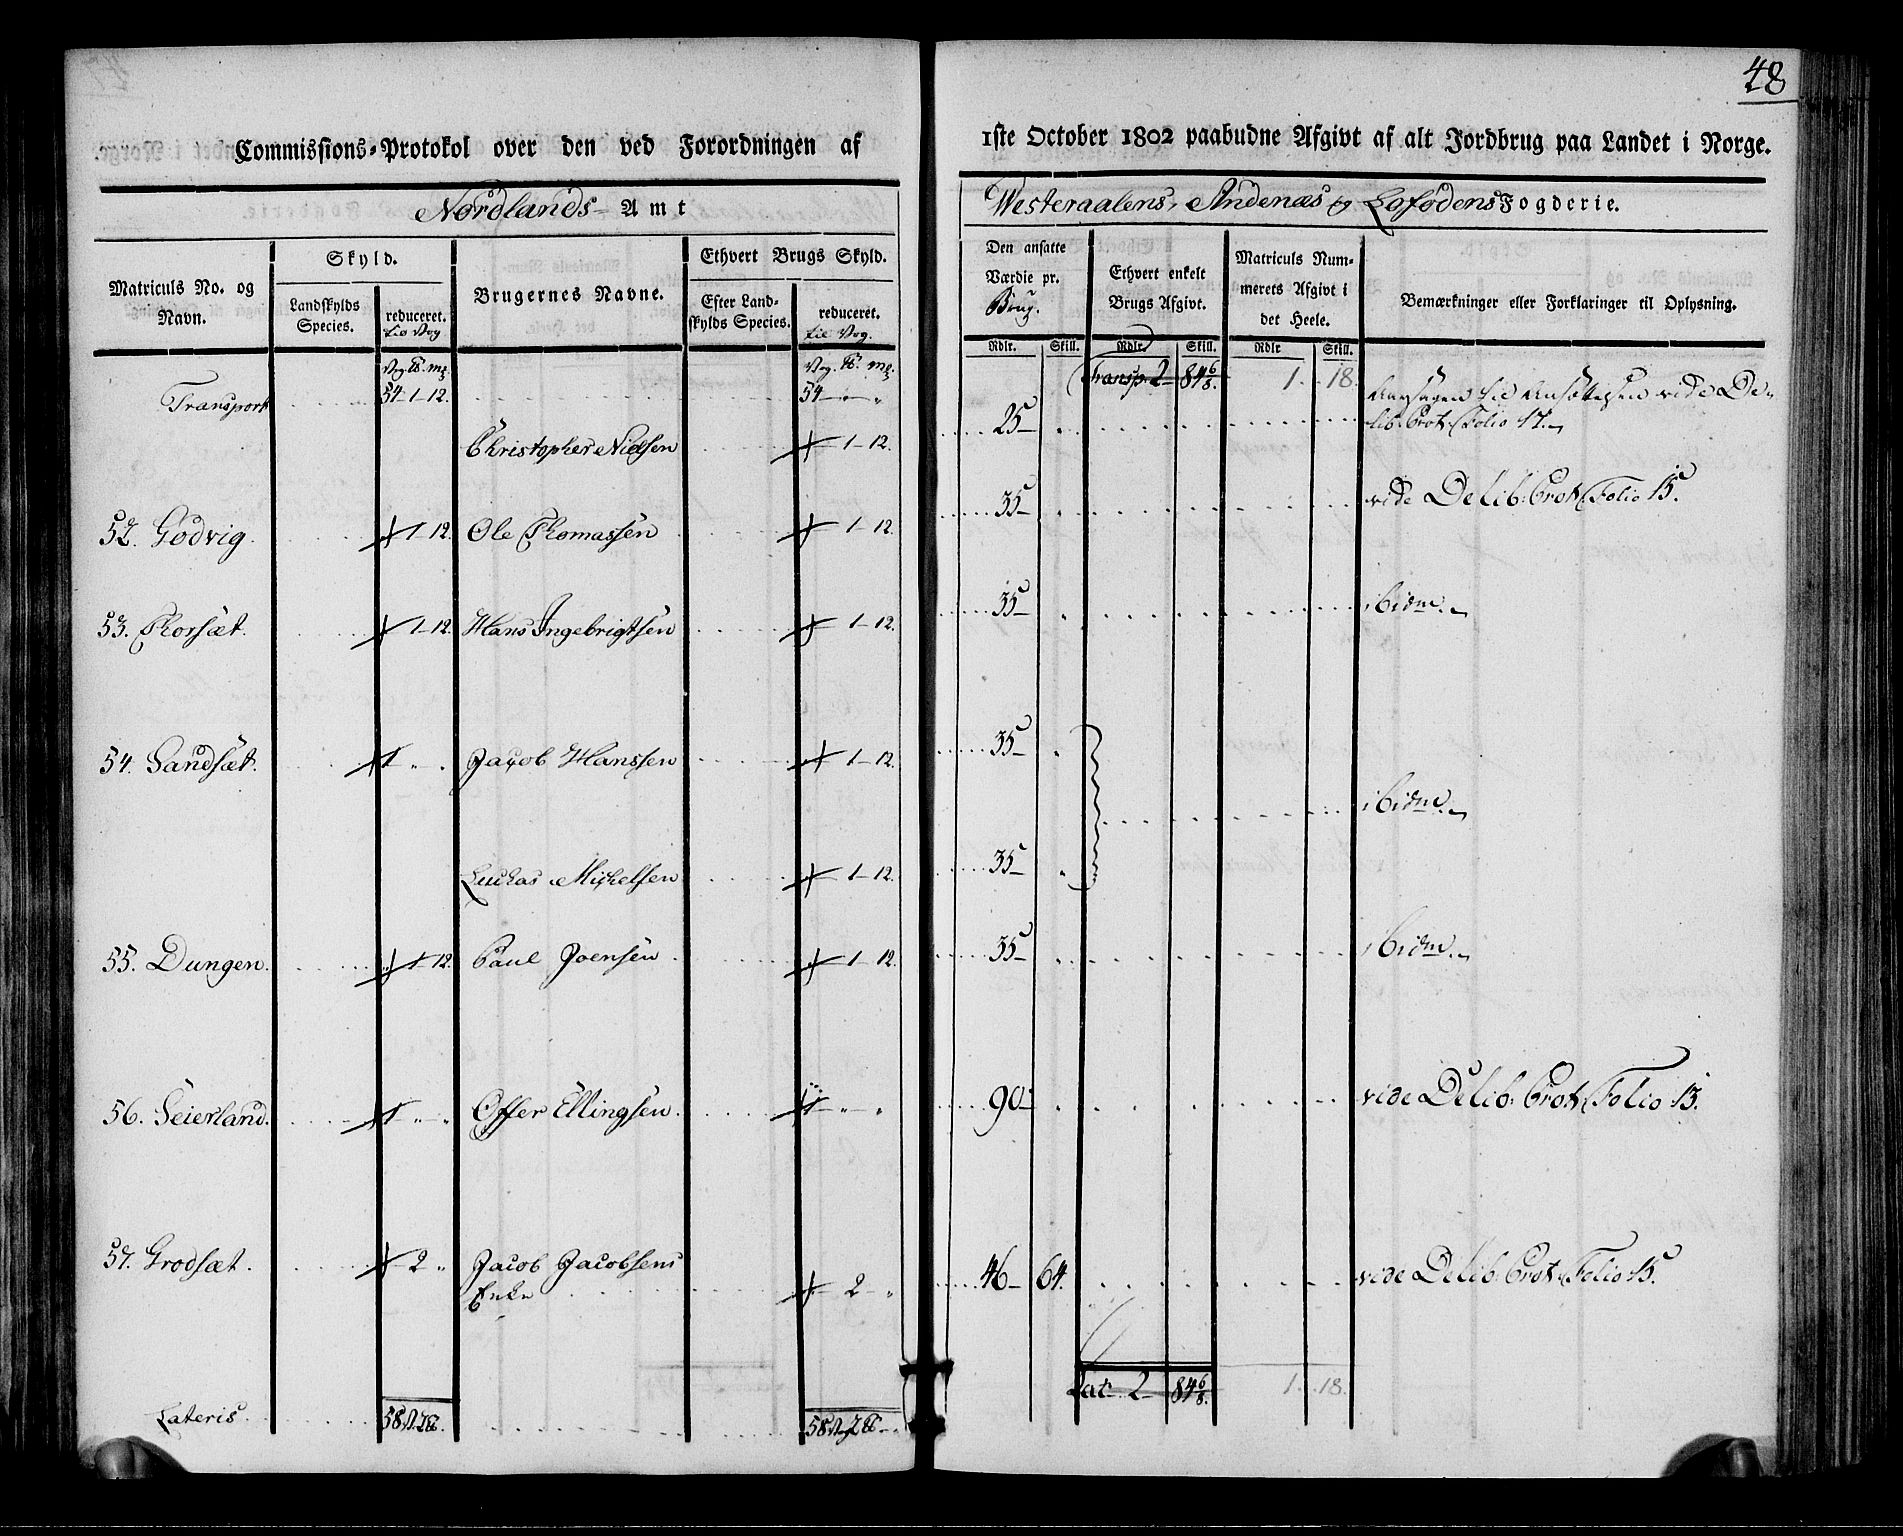 48
Commissions-Protokol over den ved Forordningen af 1ste October 1802 paabudne Afgivt af alt Jordbrug paa Landet i Norge.
Nordlands Amt Westeraalens, Andenæs og Lofodens Fogderie.
Matriculs No. og Navn.
Skyld.
Landskylds Species.
reduceret. til Vog
Brugernes Navne.
Ethvert Brugs Skyld.
Efter Landskylds Species.
reduceret. til Vog.
Den ansatte Værdie pr. Brug.
Ethvert enkelt Brugs Afgivt.
Matriculs Nummerets Afgivt i det Heele.
Bemærkninger eller Forklaringer til Oplysning.
Rdlr. Skill. Rdlr. Skill. Rdlr Skill.
Transport 54-1-12. 54 - " - " Transp. 2 - 84 6/8. 1. 18.
Christopher Nielsen 1-12. 25 - Aarsagen til Ansættelsen vide Delib: Prot: Folio 17.
52. Godvig. 1-12. Ole Thomassen 1-12. 35 - vide Delib: Prot: Folio 15.
53. Thorsæt. 1-12. Hans Ingebrigtsen 1-12. 35 - ibidm.
54. Sandsæt. 1 " " Jacob Hanssen 1-12. 35 -
ibidm.
Luckas Michelsen 1-12. 35 -
55. Dungen. 1-12. Paul Joensen 1-12. 35 - ibidm.
56. Seierland. 1 " " Offer Ellingsen. 1 - " - " 90 - vide Delib: Prot: Folio 13.
57. Grodsæt. 2 " Jacob Jacobsens Enke 2 - " 46 - 64. vide Delib: Prot: Folio 15.
Lateris. 58 V. 2 ℔. 58 Vog 2 ℔ - " Lat. 2 - 84 6/8. 1. 18.